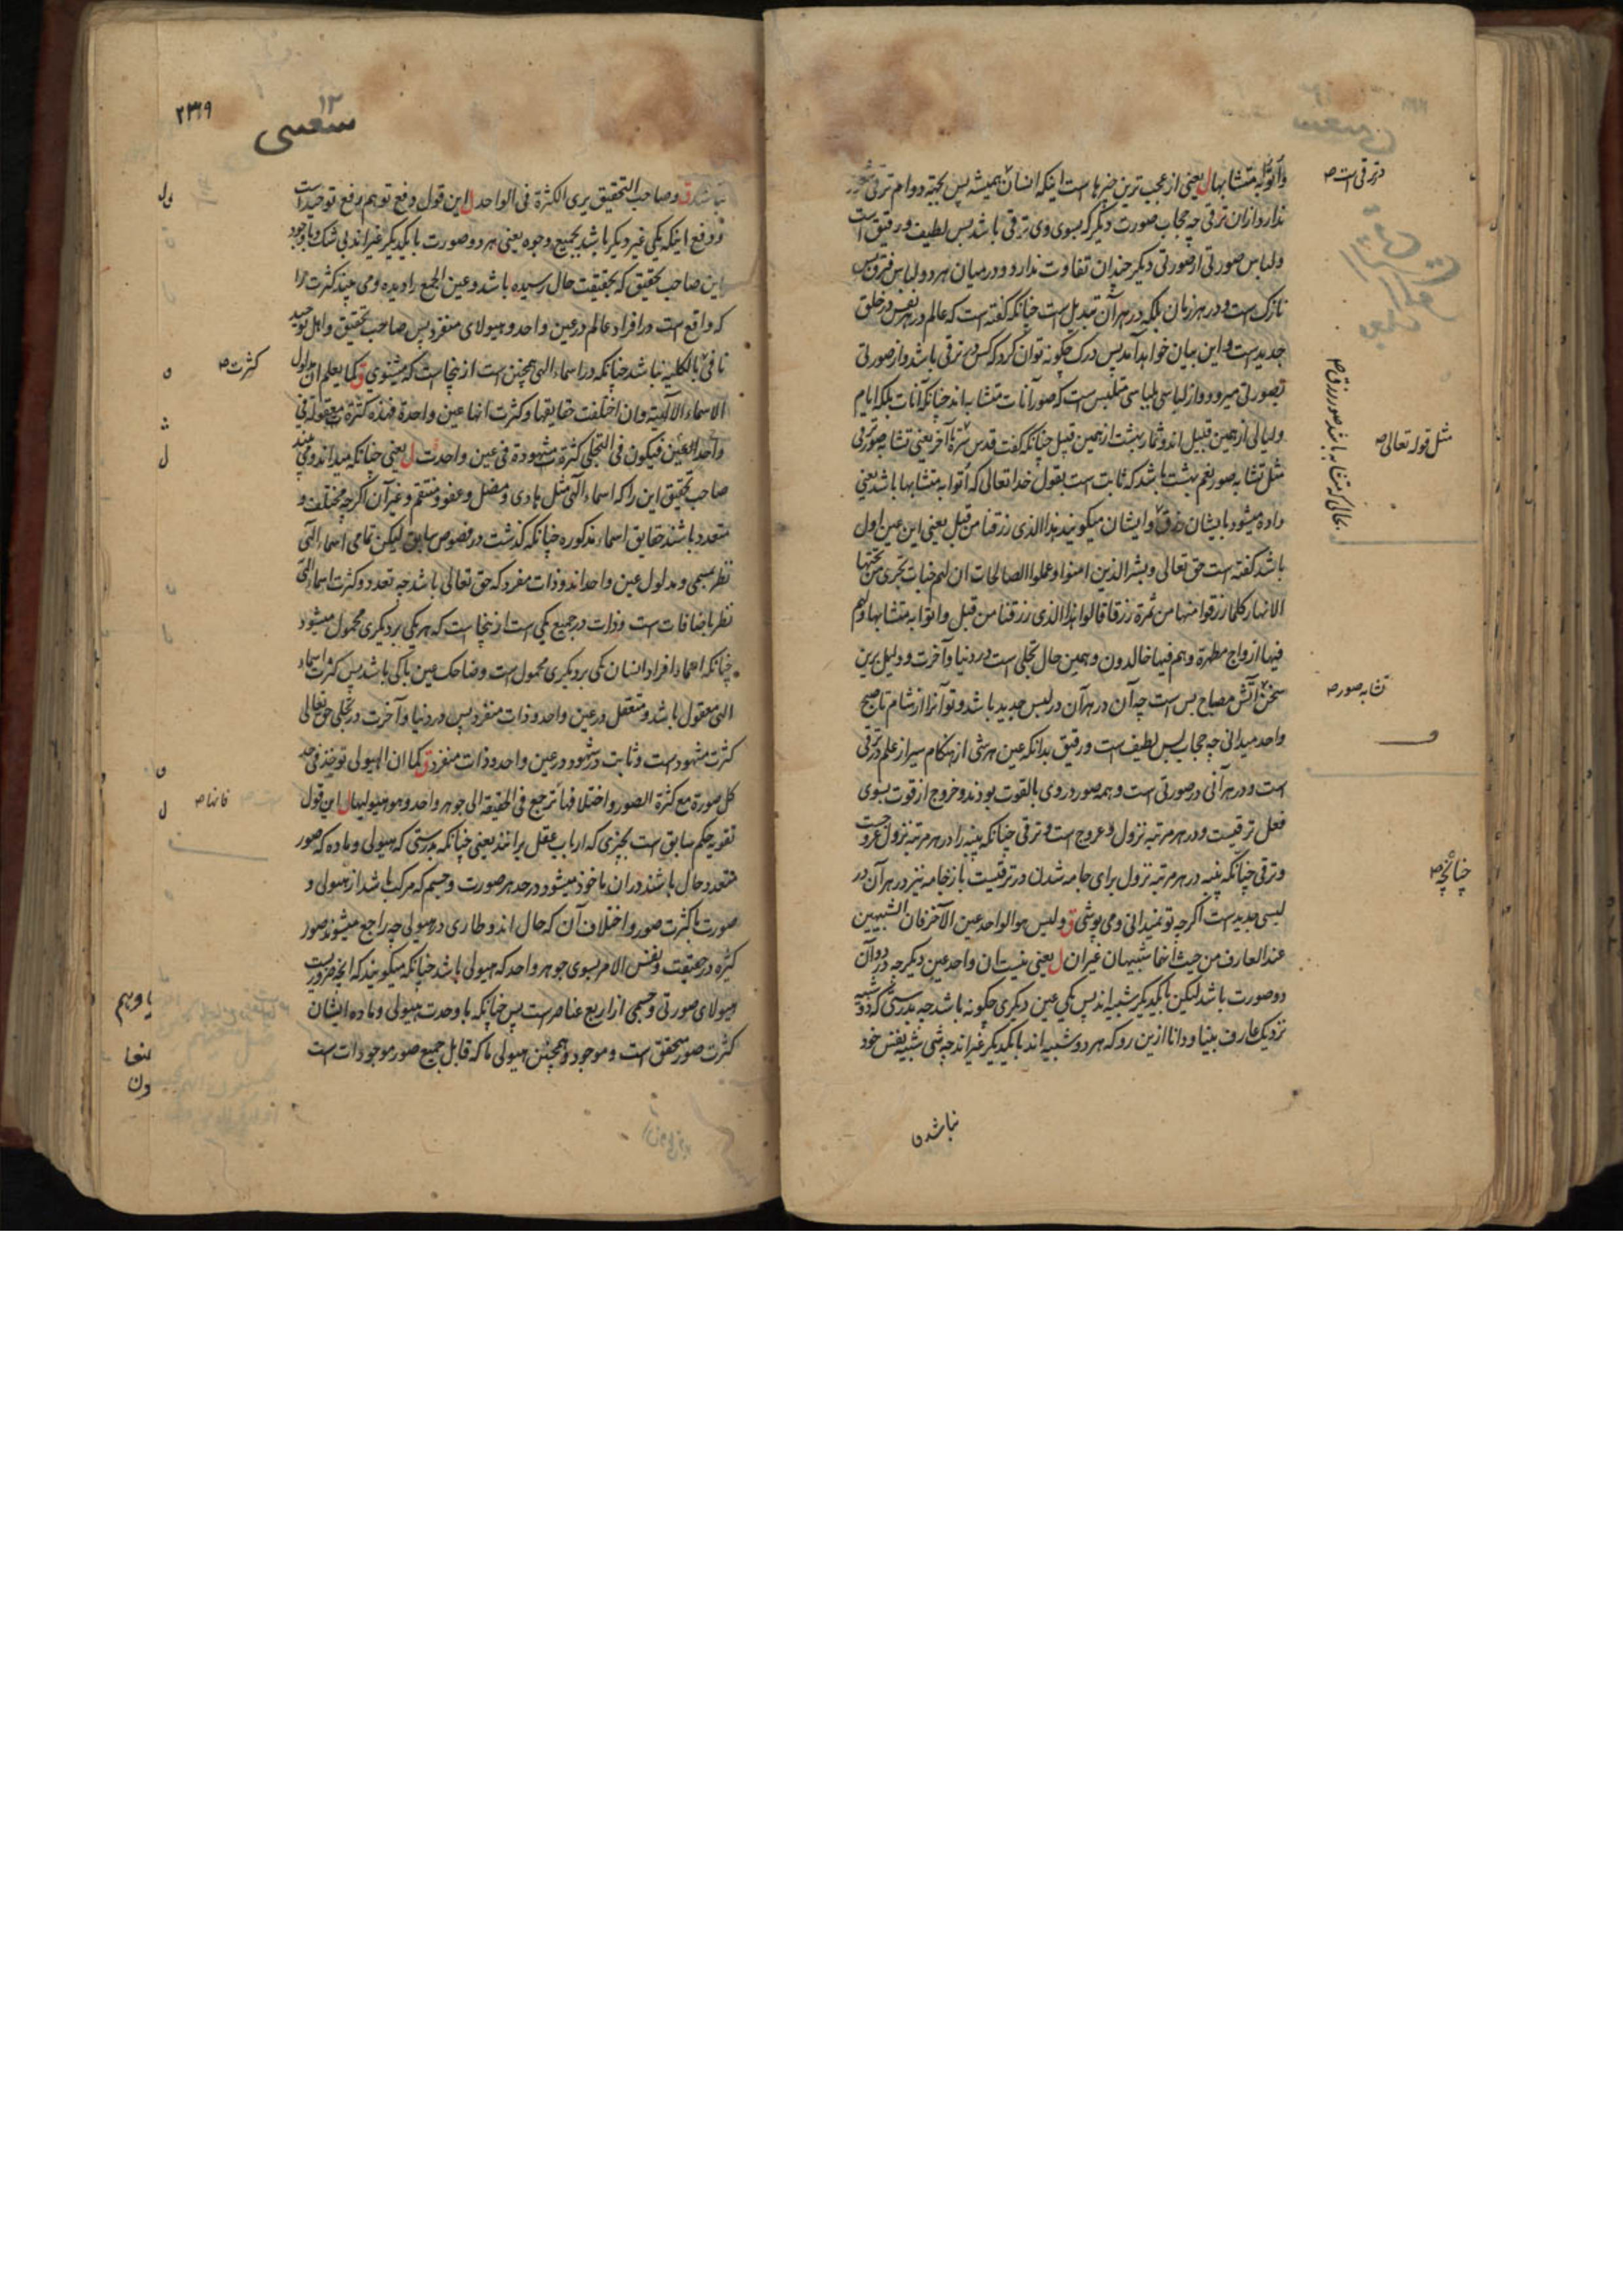 واتوا به متشابها ل یعنی از عجب ترین چیزها است اینکه انسان همیشه پس بحیثه دوام ترقی
ندارد ازان ترقی چه حجاب صورت دیگر که بسوی وی ترقی باشد بس لطیف و رقیق است
ولباس صورتی از صورتی دیگر چندان تفاوت ندارد و درمیان هر دو لباس فرق بس
نازک است و در هر زمان بلکه در هر آن تبدیل است چنانکه گفته است که عالم در هر نفس در خلق
جدید است و این بیان خواهد آمد پس درک چگونه توان کرد که کس در ترقی باشد و از صورتی
بصورتی میرود و از لباسی بلباسی متلبس است که صور آنات متشابه اند چنانکه آنات بلکه ایام
ولیالی از همین قبیل اند و ثمار بهشت از همین قبیل چنانکه گفت قدس سره آخر یعنی تشابه صور ترقی
مثل تشابه صور نعم بهشت باشد که ثابت است بقول خدا تعالی که اتوا به متشابها باشد یعنی
داده میشود بایشان رزق و ایشان میگویند هذا الذی رزقنا من قبل یعنی این عین اول
باشد گفته است حق تعالی و بشر الذین امنوا وعملوا الصالحات ان لهم جنات تجری من تحتها
الانهار کلما رزقوا منها من ثمرة رزقا قالوا هذا الذی رزقنا من قبل واتوا به متشابها ولهم
فیها ازواج مطهرة وهم فیها خالدون و همین حال تجلی است در دنیا و آخرت و دلیل برین
سخن آتش مصباح بس است چه آن در هر آن در لبس جدید باشد و تو آنرا از شام تا صبح
واحد میدانی چه حجاب بس لطیف است و رقیق بدانکه عین هر شی از هنگام سیر از علم در ترقی
است و در هر آنی در صورتی است و همه صور در وی بالقوت بودند و خروج از قوت بسوی
فعل ترقیست و در هر مرتبه نزول و عروج است و ترقی چنانکه پنبه را در هر مرتبه نزول عروجست
و ترقی چنانکه پنبه در هر مرتبه نزول برای جامه شدن در ترقیست باز جامه نیز در هر آن در
لبسی جدید است اگرچه تو نمیدانی و می پوشی ق ولیس هو الواحد عین الآخر فان الشبیهین
عند العارف من حیث انهما شبیهان غیران ل یعنی نیست آن واحد عین دیگر چه در دو آن
دو صورت باشد لیکن با یکدیگر شبیه اند پس یکی عین دیگری چگونه باشد چه بدرستی که دو شبیه
نزدیک عارف بینا و دانا ازین رو که هر دو شبیه اند با یکدیگر غیر اند چه شی شبیه نفس خود
نباشد ن
در ترقی است صح
مثل قوله تعالی صح
بحالی که متشابه باشد صور رزق صح
تشابه صور صح
چنانچه صح
۲۳۶۹
۱۲
نباشد ق و صاحب التحقیق یری الکثرة فی الواحد ل این قول دفع توهم رفع توحید است
و رفع اینکه یکی غیر دیگر باشد بجمیع وجوه یعنی هر دو صورت با یکدیگر غیر اند بی شک و باوجود
این صاحب تحقیق که بحقیقت حال رسیده باشد و عین الجمع را دیده و می بیند کثرت را
که واقع است در افراد عالم در عین واحد و هیولای منفرد پس صاحب تحقیق و اهل توحید
نافی بالکلیه نباشد چنانکه در اسماء الهی همچنین است ازینجاست که مثنوی ق کما یعلم ان مدلول
الاسماء الالهیة وان اختلفت حقایقها وکثرت انها عین واحدة فهذه کثرة معقولة فی
واحد العین فیکون فی التجلی کثرة مشهودة فی عین واحدة ل یعنی چنانکه میداند و می بیند
صاحب تحقیق این را که اسماء الهی مثل هادی و مضل و عفو و منتقم و غیر آن اگرچه مختلف و
متعدد باشند حقایق اسماء مذکوره چنانکه گذشت در فصوص سابق لیکن تمامی اسماء الهی
نظر بمسمی و مدلول عین واحد اند و ذات مفرد که حق تعالی باشد چه تعدد و کثرت اسماء الهی
نظر باضافات است و ذات در جمیع یکی است ازینجا است که هر یکی بر دیگری محمول میشود
چنانکه اسماء افراد انسان یکی بر دیگری محمول است و ضاحک عین باکی باشد پس کثرت اسماء
الهی معقول باشد و متعقل در عین واحد و ذات منفرد پس در دنیا و آخرت در تجلی حق تعالی
کثرت مشهود است و ثابت و شهود در عین واحد و ذات منفرد ق کما ان الهیولی توخذ فی حد
کل صورة مع کثرة الصور واختلافها ترجع فی الحقیقة الی جوهر واحد وهو هیولیها ل این قول
تقویه حکم سابق است بچیزی که ارباب عقل برانند یعنی چنانکه بدرستی که هیولی و ماده که صور
متعدد حال باشند دران ماخوذ میشود در حد هر صورت و جسم که مرکب باشد از هیولی و
صورت با کثرت صور و اختلاف آن که حال اند و طاری در هیولی چه راجع میشوند صور
کثیره در حقیقت و نفس الامر بسوی جوهر واحد که هیولی باشد چنانکه میگویند که انچه ضروریست
هیولای صورتی و جسمی از اربع عناصر است پس چنانکه با وحدت هیولی و ماده ایشان
کثرت صور متحقق است و موجود و همچنین هیولی ما که قابل جمیع صور موجودات است
کثرت صح
فانها صح